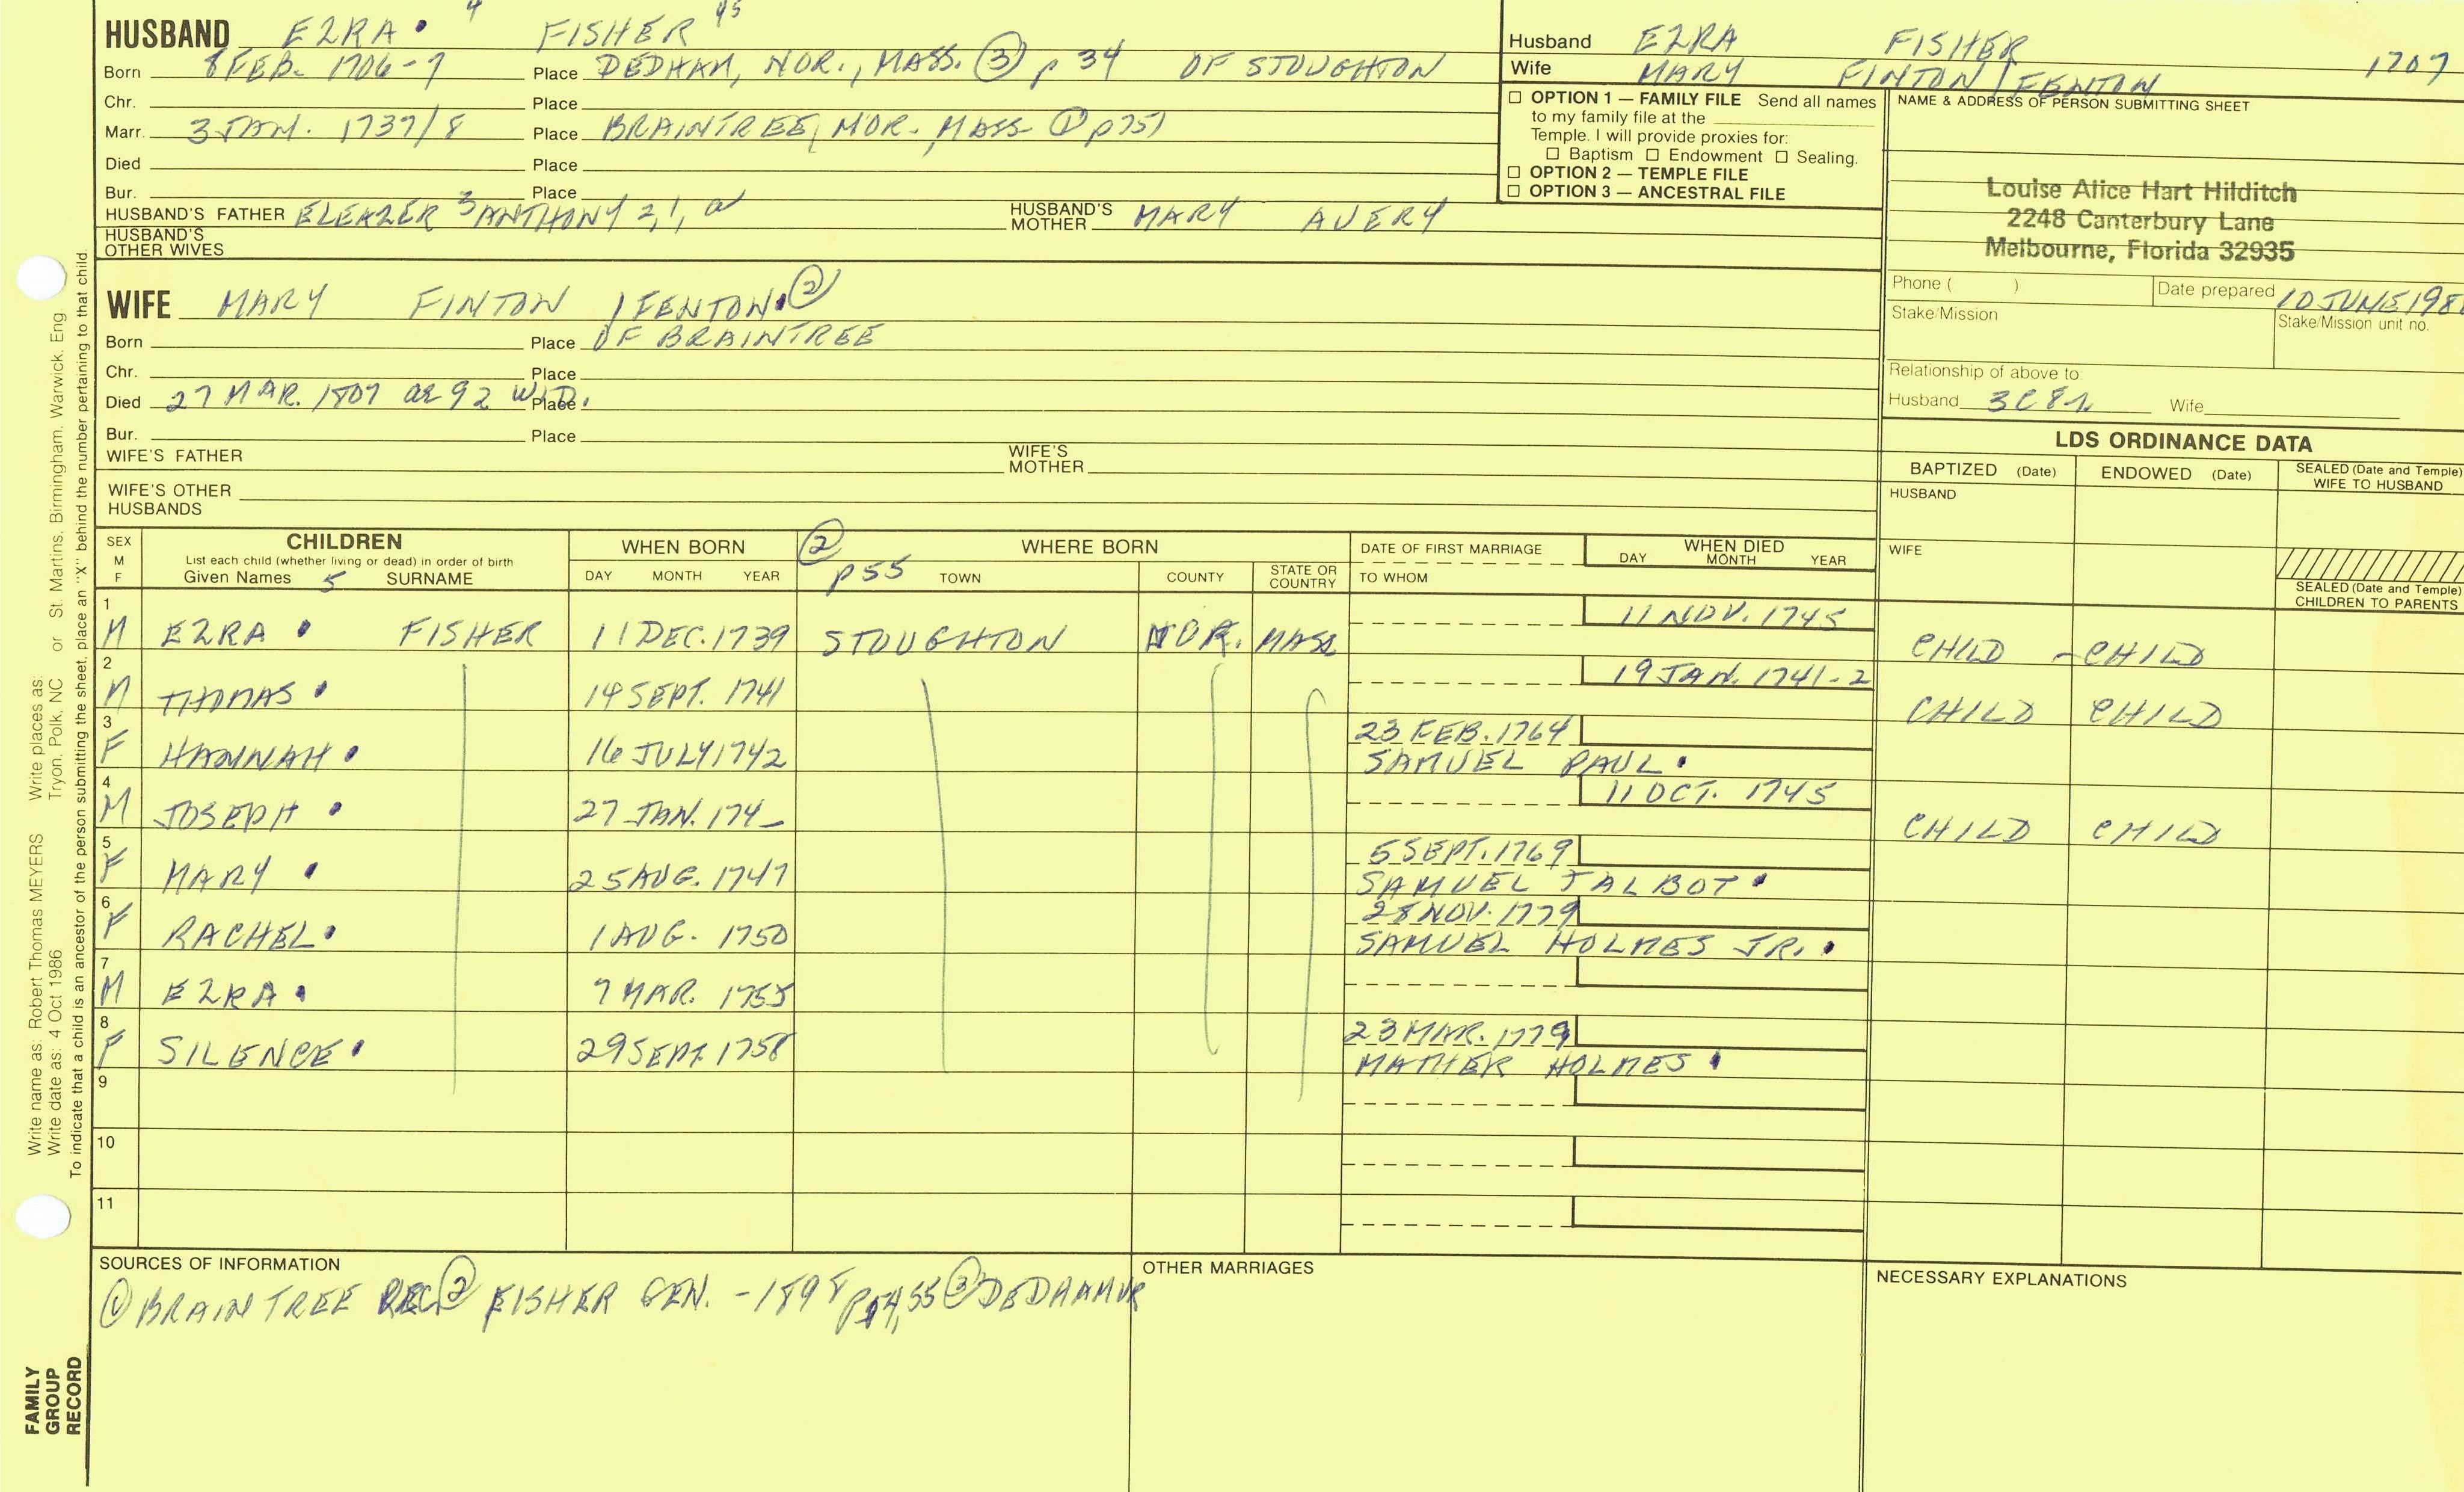 HUSBAND EZRA • 4 FISHER 45
Born 8 FEB. 1706-7 Place DEDHAM, NOR., MASS. ③ p 34 OF STOUGHTON
Chr. Place
Marr. 3 JAN. 1737/8 Place BRAINTREE, NOR. MASS ① p751
Died Place
Bur. Place
HUSBAND'S FATHER ELEAZER 3 ANTHONY 2, 1, HUSBAND'S MOTHER MARY AVERY
HUSBAND'S OTHER WIVES
WIFE MARY FINTON / FENTON • ②
Born Place OF BRAINTREE
Chr. Place
Died 27 MAR. 1807 ae 92 WID. Place
Bur. Place
WIFE'S FATHER WIFE'S MOTHER
WIFE'S OTHER HUSBANDS
Husband EZRA FISHER 1707
Wife MARY FINTON / FENTON
☐ OPTION 1 — FAMILY FILE Send all names
to my family file at the
Temple. I will provide proxies for:
☐ Baptism ☐ Endowment ☐ Sealing.
☐ OPTION 2 — TEMPLE FILE
☐ OPTION 3 — ANCESTRAL FILE
NAME & ADDRESS OF PERSON SUBMITTING SHEET
Louise Alice Hart Hilditch
2248 Canterbury Lane
Melbourne, Florida 32935
Phone ( ) Date prepared 10 JUNE 198
Stake/Mission Stake/Mission unit no.
Relationship of above to
Husband 3C8r Wife
LDS ORDINANCE DATA
BAPTIZED (Date) ENDOWED (Date) SEALED (Date and Temple) WIFE TO HUSBAND
HUSBAND
WIFE
SEALED (Date and Temple) CHILDREN TO PARENTS
SEX M F CHILDREN List each child (whether living or dead) in order of birth Given Names 5 SURNAME
WHEN BORN DAY MONTH YEAR
② p55 WHERE BORN TOWN COUNTY STATE OR COUNTRY
DATE OF FIRST MARRIAGE TO WHOM
WHEN DIED DAY MONTH YEAR
1 M EZRA • FISHER 11 DEC. 1739 STOUGHTON NOR. MASS 11 NOV. 1745 CHILD - CHILD
2 M THOMAS • 14 SEPT. 1741 19 JAN. 1741-2 CHILD CHILD
3 F HANNAH • 16 JULY 1742 23 FEB. 1764 SAMUEL PAUL •
4 M JOSEPH • 27 JAN. 174_ 11 OCT. 1745 CHILD CHILD
5 F MARY • 25 AUG. 1747 5 SEPT. 1769 SAMUEL TALBOT •
6 F RACHEL • 1 AUG. 1750 28 NOV. 1779 SAMUEL HOLMES JR. •
7 M EZRA • 7 MAR. 1755
8 F SILENCE • 29 SEPT. 1758 23 MAR. 1779 MATHER HOLMES •
9
10
11
SOURCES OF INFORMATION
① BRAINTREE REC ② FISHER GEN. - 1898 p54, 55 ③ DEDHAM VR
OTHER MARRIAGES
NECESSARY EXPLANATIONS
Write name as: Robert Thomas MEYERS Write places as: St. Martins, Birmingham, Warwick, Eng
Write date as: 4 Oct 1986 Tryon, Polk, NC or
To indicate that a child is an ancestor of the person submitting the sheet, place an "X" behind the number pertaining to that child.
FAMILY
GROUP
RECORD